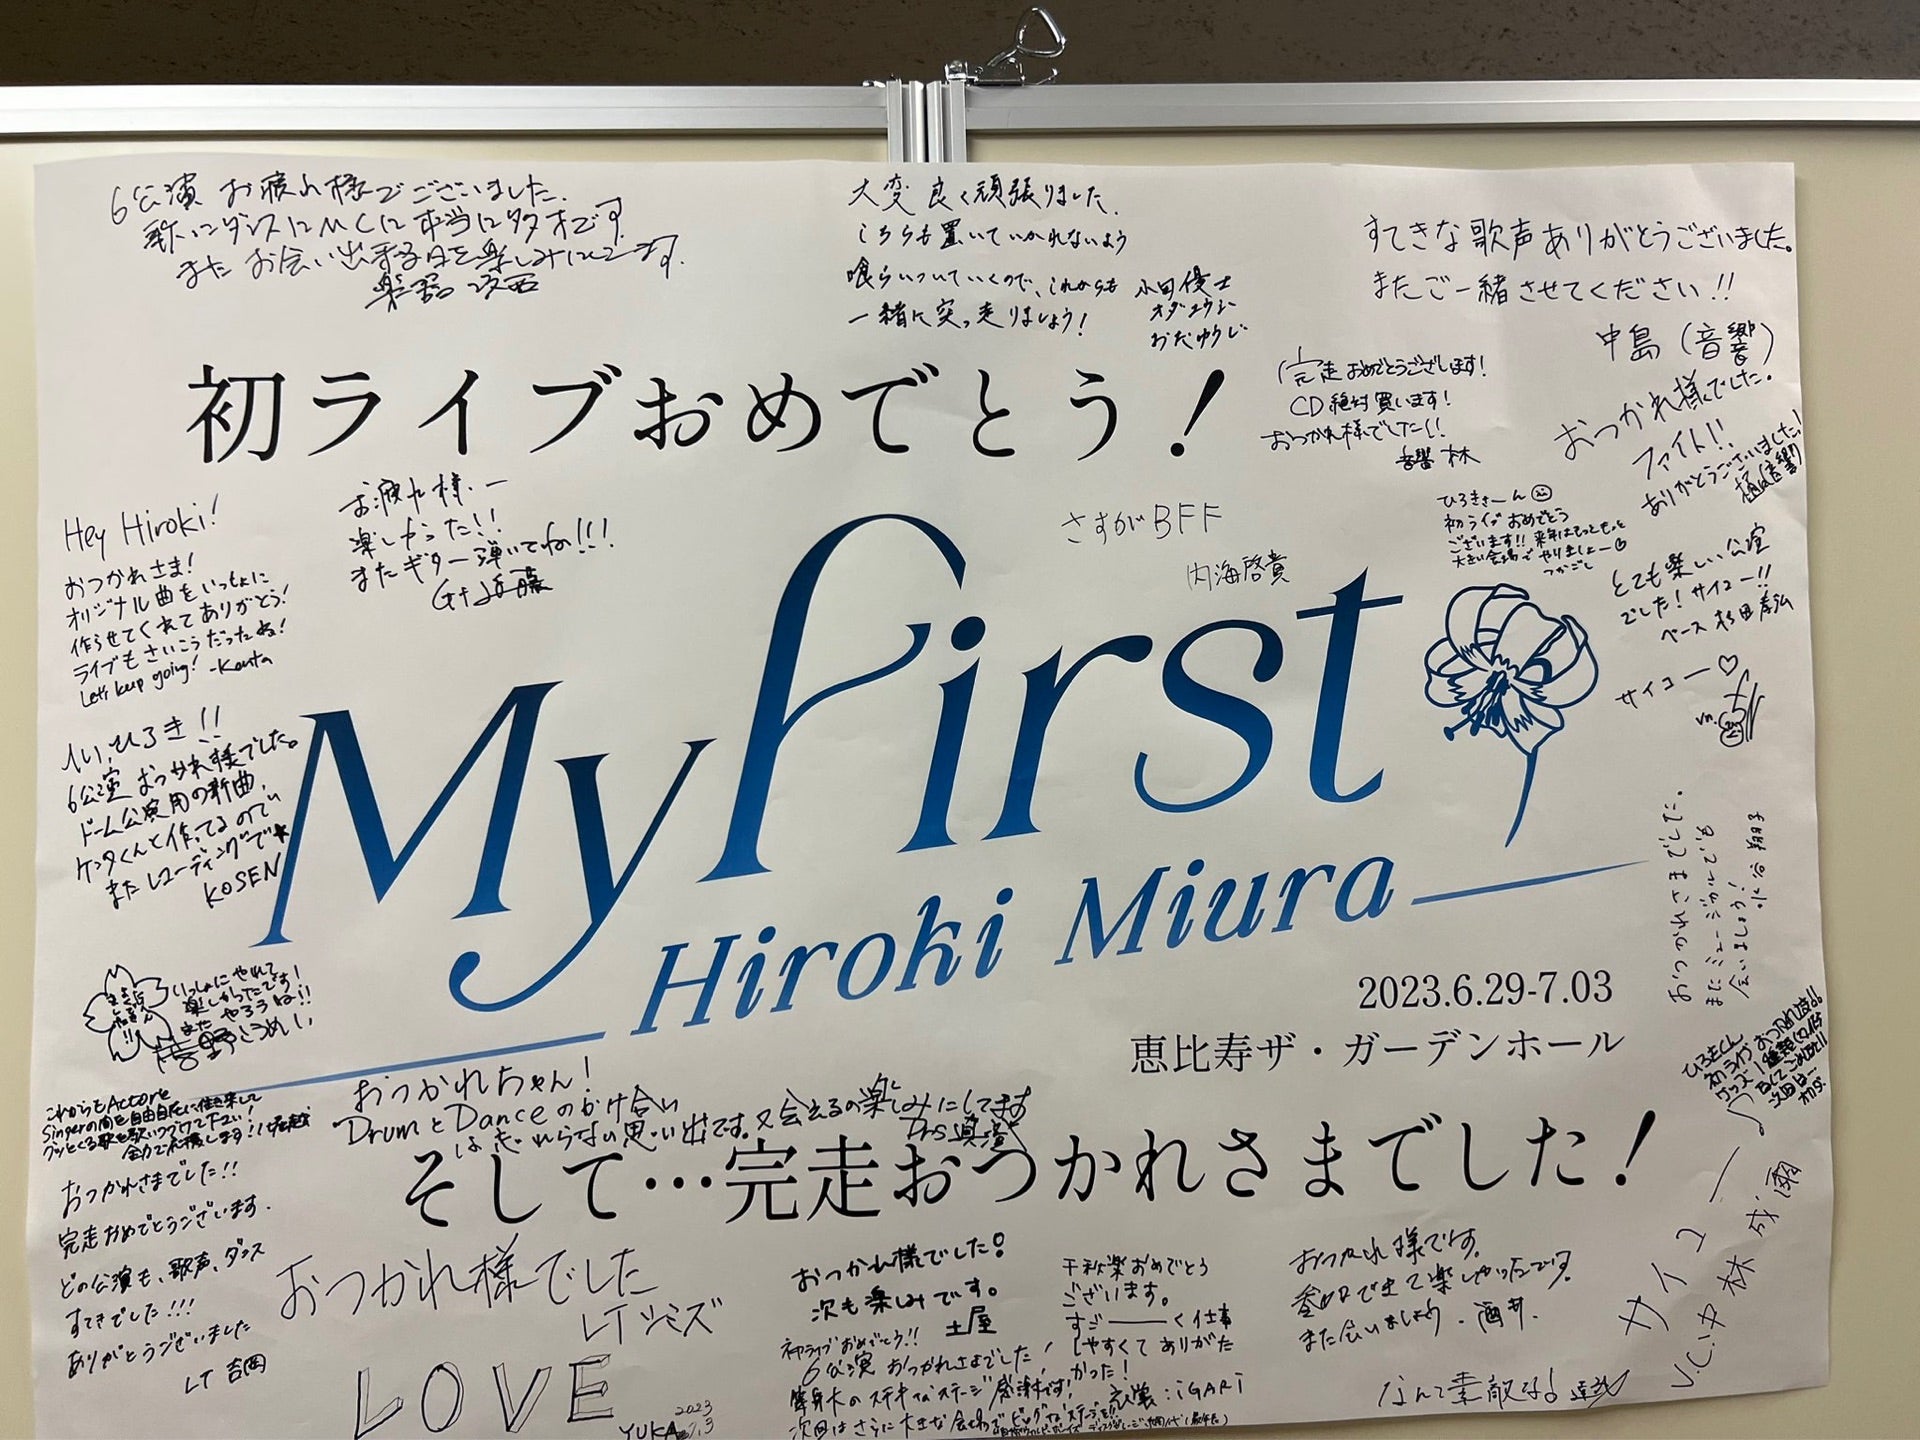 6公演 お疲れ様でございました.
歌にダンスにMCに本当に多才です.
また お会い出来る日を楽しみにしてます.
楽器
大変良く頑張りました.
こちらも置いていかれないよう
喰らいついていくので、これからも
一緒に突っ走りましょう!
小田優士
オダユウジ
おだゆうじ
すてきな歌声ありがとうございました。
またご一緒させてください!!
中島(音響)
初ライブおめでとう!
完走おめでとうございます!
CD絶対買います!
おつかれ様でした!!
音響 林
おつかれ様でした.
ファイト!!
ありがとうございました!
Hey Hiroki!
おつかれさま!
オリジナル曲をいっしょに
作らせてくれてありがとう!
ライブもさいこうだったね!
Let's keep going! -Kenta
お疲れ様ー
楽しかった!!
またギター弾いてね!!!
さすがBFF
内海啓貴
ひろきさーん
初ライブおめでとう
ございます!! 来年はもっともっと
大きい会場でやりましょー♡
つかごし
とても楽しい公演
でした!サイコー!!
ベース 杉田
サイコー♡
My First
Hiroki Miura
2023.6.29-7.03
恵比寿ザ・ガーデンホール
へい,ひろき!!
6公演おつかれ様でした。
ドーム公演用の新曲,
ケンタくんと作ってるので
またレコーディングで★
KOSEN
おつかれさまでした!!
会いましょう!
小谷
いっしょにやれて
楽しかったです!
またやろうね!!
ひろきくん
初ライブおつかれ様!!
これからもActorと
Singerの間を自由自在に
全力で応援します!!
おつかれちゃん!
DrumとDanceのかけ合い
は忘れらない思い出です。又会えるの楽しみにしてます
Drs
そして…完走おつかれさまでした!
おつかれさまでした!!
完走おめでとうございます.
どの公演も、歌声、ダンス
すてきでした!!!
ありがとうございました
LT 吉岡
おつかれ様でした
LT シミズ
LOVE
YUKA 2023
7.3
おつかれ様でした!
次も楽しみです。
土屋
初ライブおめでとう!!
6公演 おつかれさまでした!
等身大のステキなステージ感謝です!
次回はさらに大きな会場で
千秋楽おめでとう
ございます。
すご——く仕事
しやすくて ありがた
かった!
衣裳:iGARi
おつかれ様です.
参加できて楽しかったです.
また会いましょう.酒井.
なんて素敵な♪
サイコー